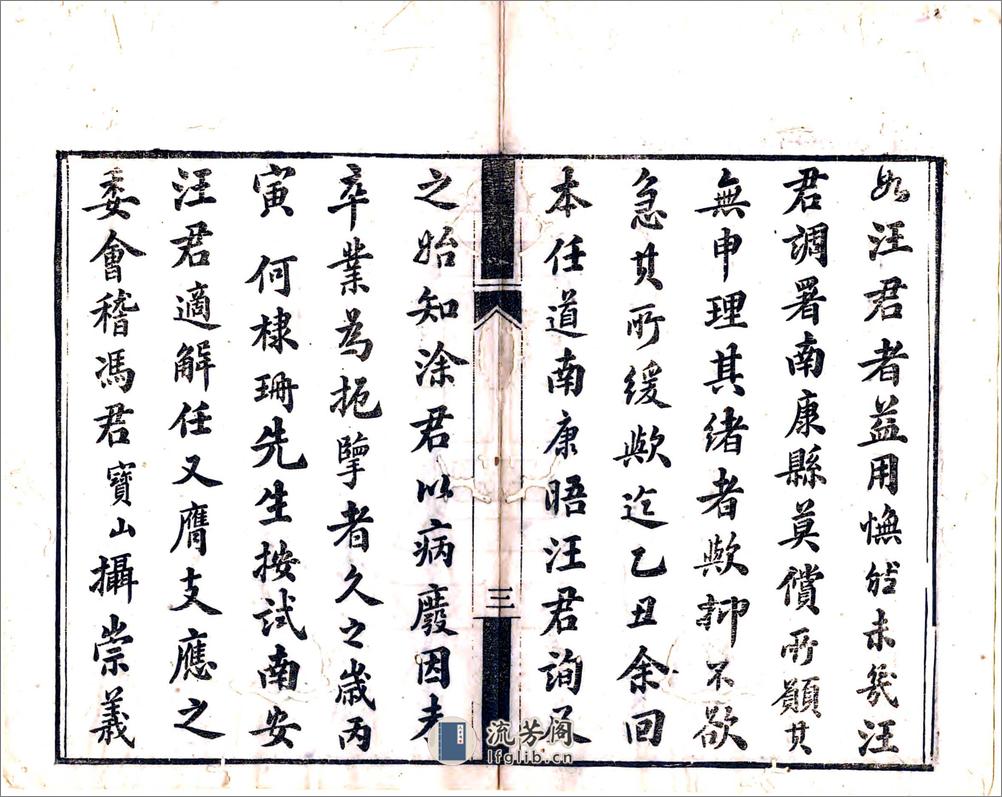 如汪君者益用憮然未幾汪
君調署南康縣莫償所願其
無申理其緒者歟抑不欲
急其所緩歟迄乙丑余回
本任道南康晤汪君詢
三
之始知涂君以病廢因未
卒業為扼擥者久之歲丙
寅 何棣珊先生按試南安
汪君適解任又膺支應之
委會稽馮君寶山攝崇義
流芳阁
lfglib.cn